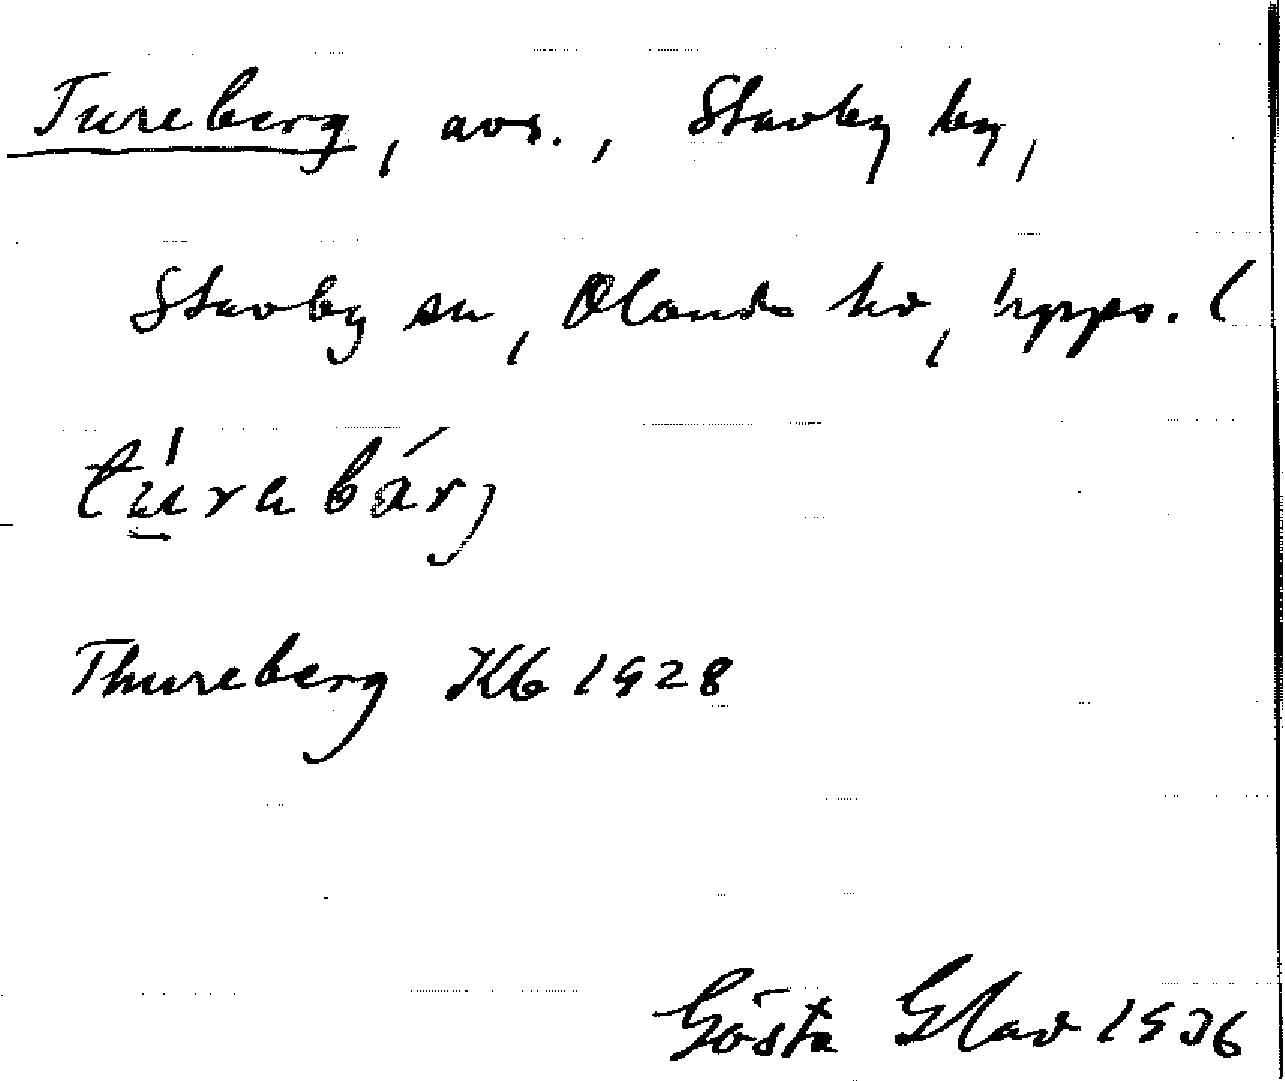 Tureberg, avs., Stavby by,
Stavby sn, Olands hd, Upps. l
túrabárj
Thureberg Kb 1928
Gösta Glad 1936